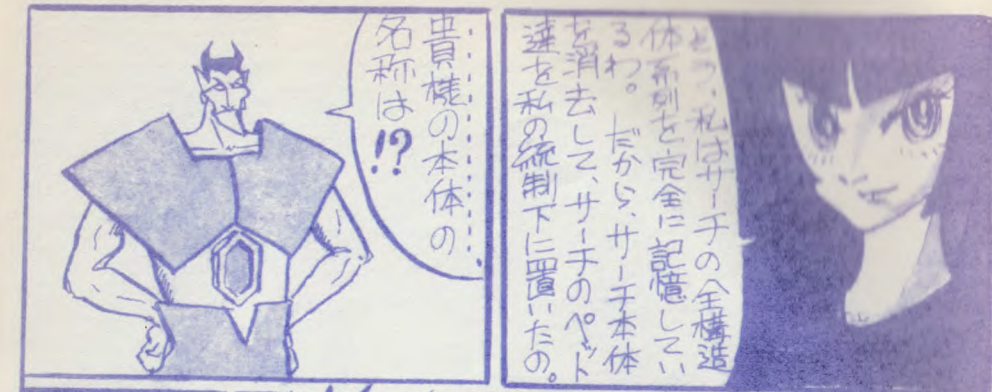 そう、私はサーチの全構造
体系列を完全に記憶してい
るわ。　だから、サーチ本体
を消去して、サーチのペット
達を私の統制下に置いたの。
…………
貴様の本体の
名称は!?